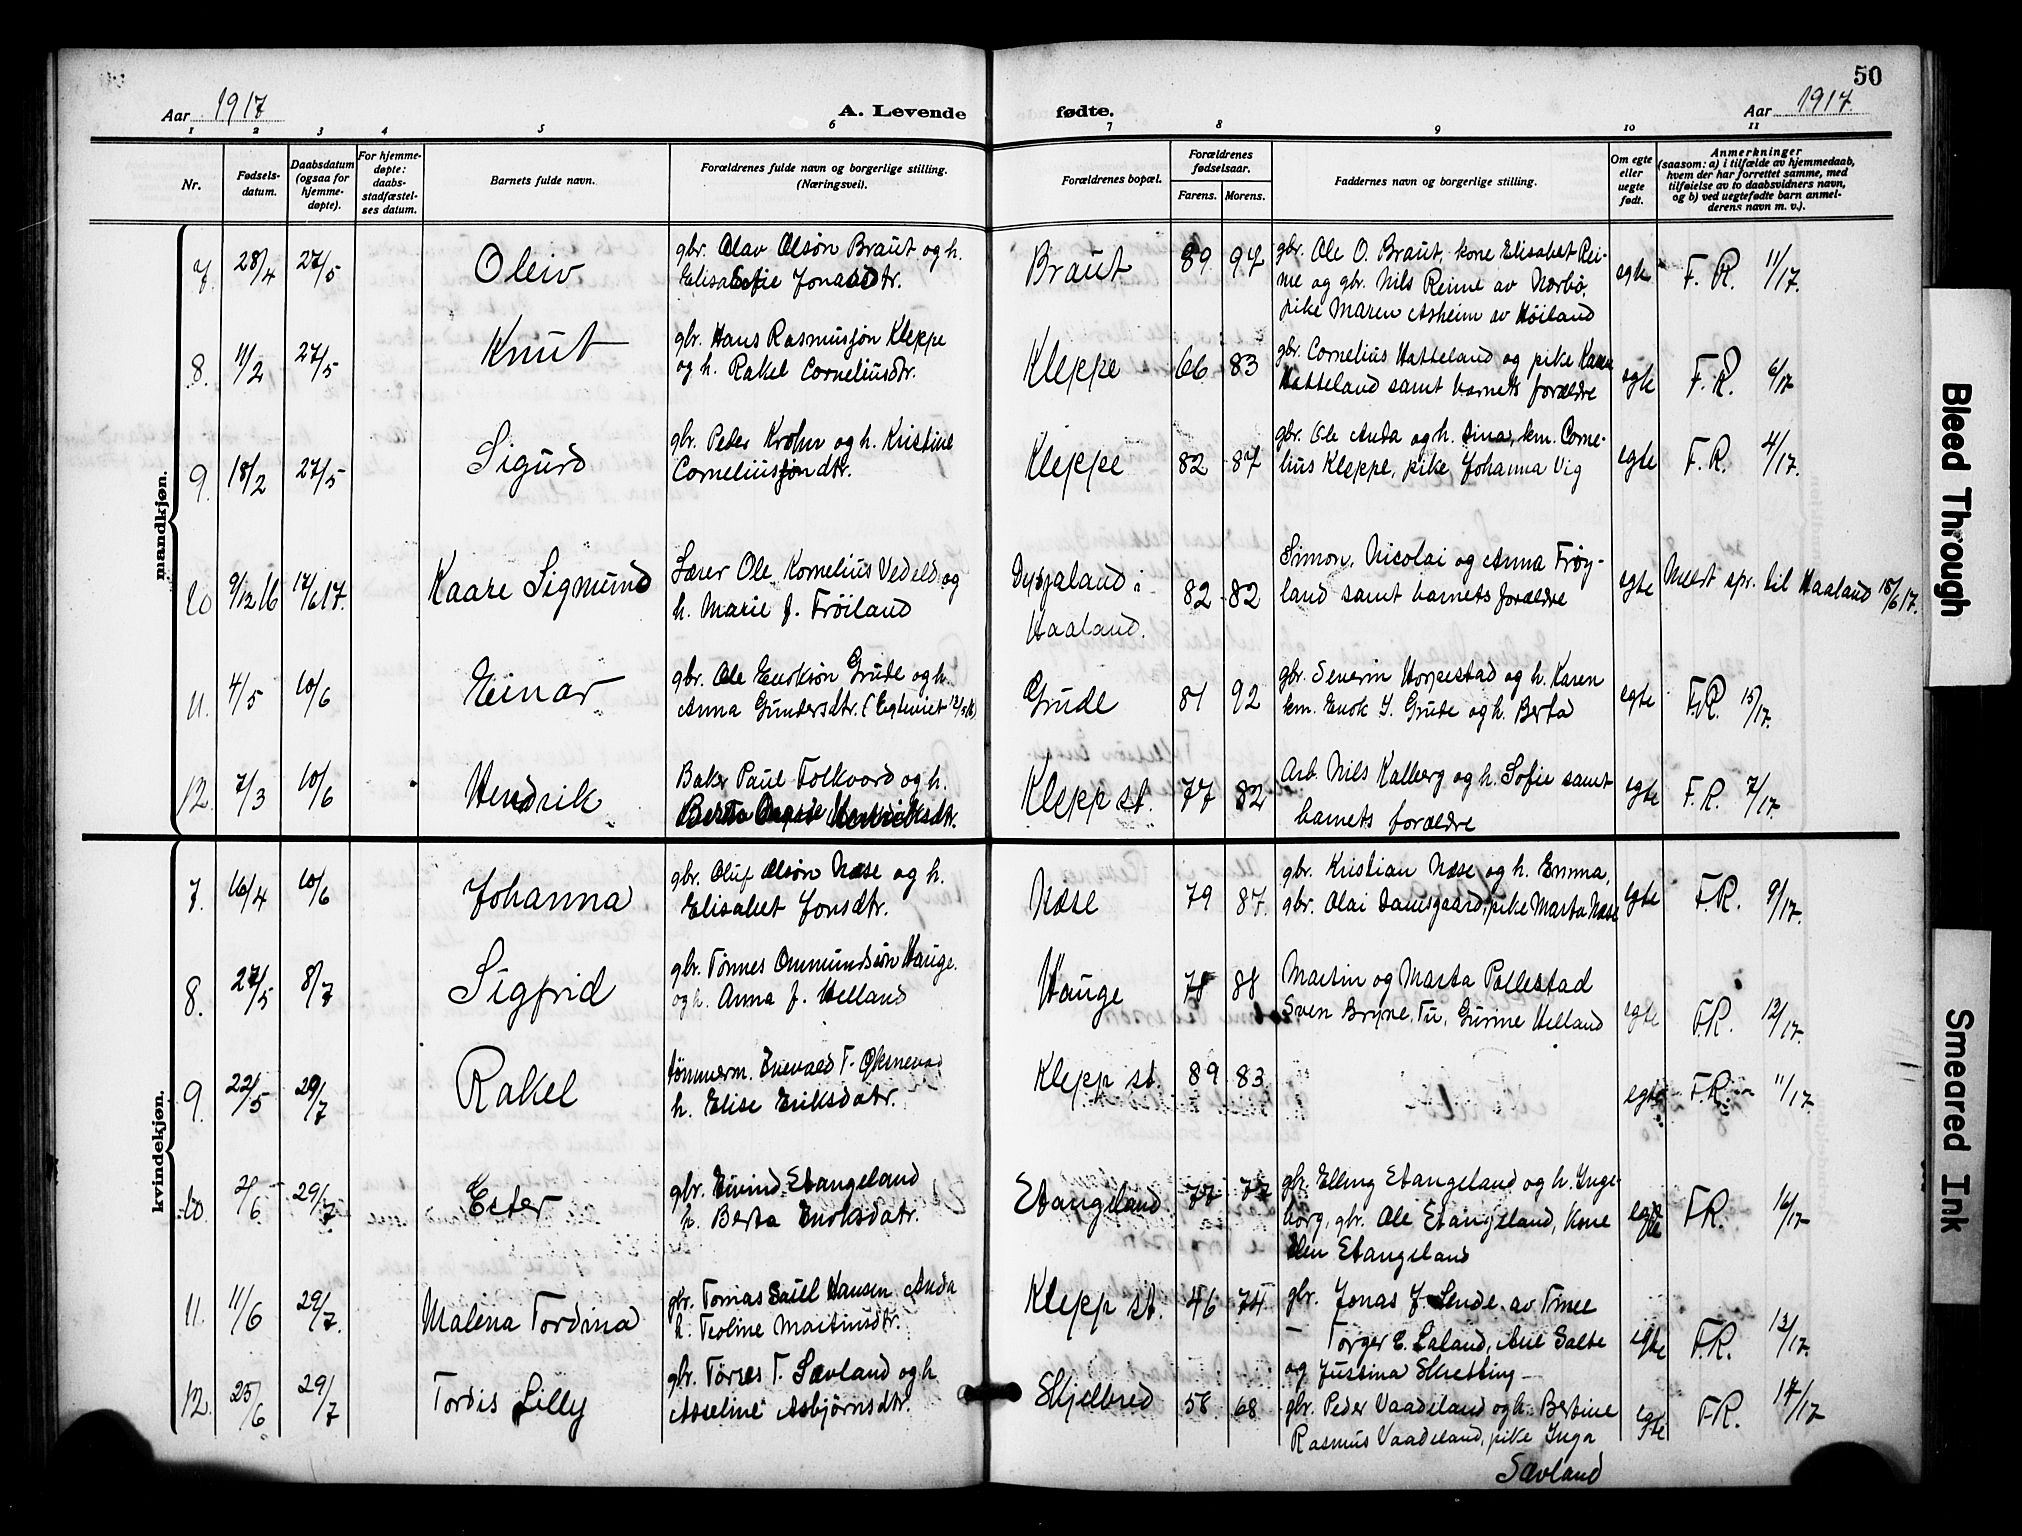 50
Aar 1917 A. Levende fødte. Aar 1917
1 2 3 4 5 6 7 8 9 10 11
Nr. Fødsels-datum. Daabsdatum (ogsaa for hjemme-døpte). For hjemme-døpte: daabs-stadfæstel-ses datum. Barnets fulde navn. Forældrenes fulde navn og borgerlige stilling. (Næringsvei). Forældrenes bopæl. Forældrenes fødselsaar. Farens. Morens. Faddernes navn og borgerlige stilling. Om egte eller uegte født. Anmerkninger (saasom: a) i tilfælde av hjemmedaab, hvem der har forrettet samme, med tilføielse av to daabsvidners navn, og b) ved uegtefødte barn anmel-derens navn m. v.).
mandkjøn.
7. 28/4 27/5 Oleiv gbr. Olav Olsøn Braut og h. Braut 89 97 gbr. Ole O. Braut, kone Elisabet Rei- egte F. R. 11/17.
Sofie Jonasdtr. me og gbr. Nils Reime av Nærbø,
pike Maren Asheim av Høiland
8. 11/2 27/5 Knut gbr. Hans Rasmussøn Kleppe Kleppe 66 83 gbr. Cornelius Hatteland og pike Karen egte F. R. 6/17
og h. Rakel Corneliusdtr. Hatteland samt barnets forældre
9. 18/2 27/5 Sigurd gbr. Peder Krohn og h. Kristine Kleppe 82 87 gbr. Ole Anda og h. Sina, km. Corne- egte F. R. 4/17.
Cornelius dtr. lius Kleppe, pike Johanna Vig
10 9/12 16 17/6 17. Kaare Sigmund Lærer Ole Kornelius Vedeld og Dysjaland i 82 82 Simon, Nicolai og Anna Frøy- egte Meldt spr. til Haaland 18/6 17.
h. Marie f. Frøiland Haaland. land samt barnets forældre
11. 4/5 10/6 Einar gbr. Ole Enoksøn Grude og h. Grude 81 92 gbr. Severin Horpestad og h. Karen egte F.R. 15/17.
Anna Gundersdtr. (Egteviet 12/5 16) km. Enok I. Grude og h. Berta
12. 7/3 10/6 Hendrik Baker Paul Folkvord og h. Klepp st. 77 82 Arb. Nils Kalberg og h. Sofie samt egte F. R. 7/17.
Berta Henriksdtr. barnets forældre
kvindekjøn.
7. 16/4 10/6 Johanna gbr. Oluf Olsøn Næse og h. Næse 79 87. gbr. Kristian Næse og h. Emma, egte F. R. 9/17.
Elisabet Jonsdtr. gbr. Olai Damsgaard, pike Marta Næse
8. 27/5 8/7 Sigfrid gbr. Tønnes Ommundsøn Hauge. Hauge 78 88 Martin og Marta Pollestad egte F.R. 12/17
og h. Anna f. Helland Sven Bryne, Tu, Gurine Helland
9. 22/5 29/7 Rakel tømmerm. Enevald T. Øksnevad Klepp st. 89 83 egte F.R. 11/17.
h. Elise Eriksdatr.
10. 2/6 29/7 Ester gbr. Eivind Stangeland Stangeland 77 77 gbr. Elling Stangeland og h. Inge- egte F.R. 16/17
h. Berta Enoksdatr. borg, gbr. Ole Stangeland, Kone
Elen Stangeland
11. 11/6 29/7. Malena Tordina gbr. Tomas Saiel Hansen Anda Klepp st. 46 74 gbr. Jonas J. Lende av Time egte F.R. 13/17.
h. Teoline Martinsdtr. — Torger E. Laland, Ane Salte
og Justina Skretting —
12. 25/6 29/7 Tordis Lilly gbr. Tørres T. Sævland og h Skjelbred 58 68 gbr. Peder Vaadeland og h. Bertine egte F.R. 17/17
Asseline Asbjørnsdtr. Rasmus Vaadeland, pike Inga
Sævland
Bleed Through
Smeared Ink